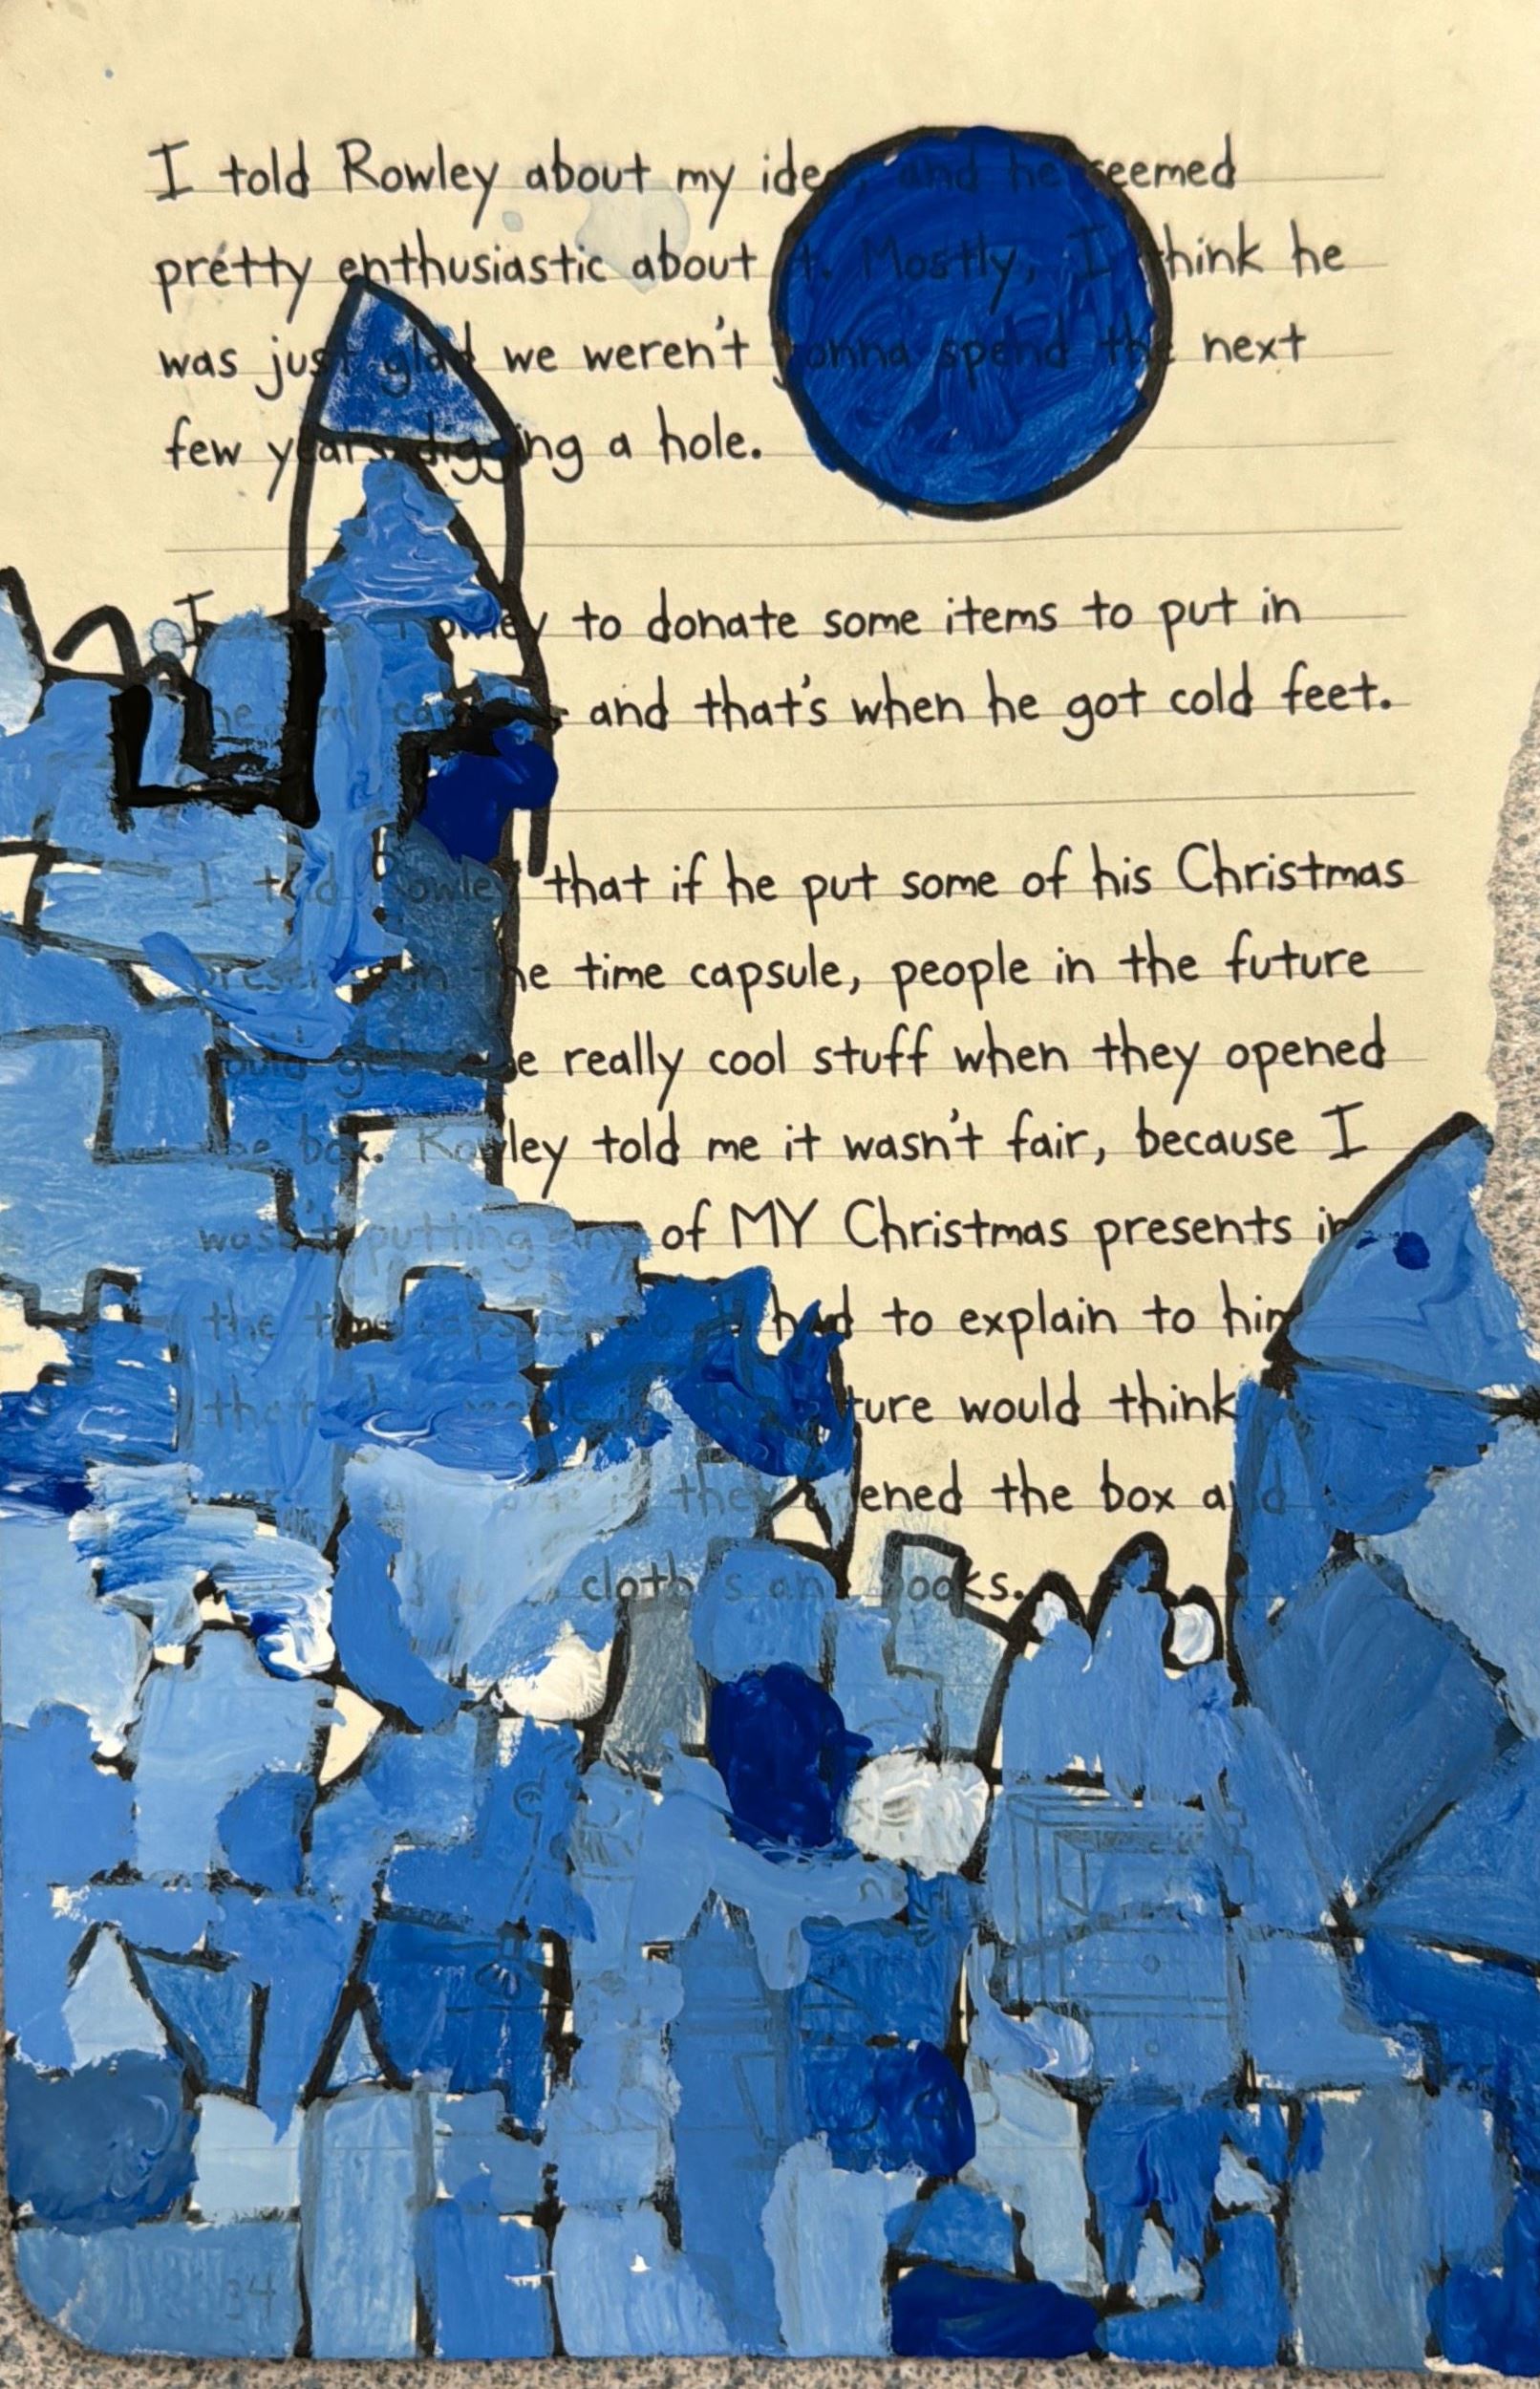 I told Rowley about my idea, and he seemed
pretty enthusiastic about it. Mostly, I think he
was just glad we weren't gonna spend the next
few years digging a hole.
I Rowley to donate some items to put in
the time capsule, and that's when he got cold feet.
I told Rowley that if he put some of his Christmas
presents in the time capsule, people in the future
would get some really cool stuff when they opened
the box. Rowley told me it wasn't fair, because I
wasn't putting any of MY Christmas presents in
the time capsule. So I had to explain to him
that the people in the future would think
if they opened the box and
clothes and books.
34